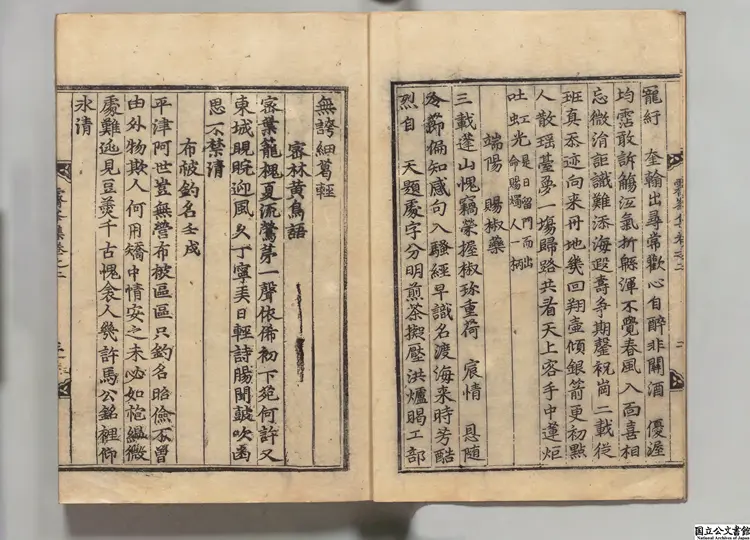 寵紆 奎翰出尋常歡心自醉非關酒 優渥
均霑敢訴觴江氣折緜渾不覺春風入面喜相
忘微涓詎識難添海遐壽爭期祝崗二載從
班真忝迹向来丹地幾回翔壺傾銀箭更初點
人散瑤臺夢一塲歸路共看天上客手中蓮炬
吐虹光 是日留門而出
命賜燭人一柄
端陽 賜椒藥
三載蓬山愧竊榮握椒珎重荷 宸情 恩随
節偏知感句入騷經早識名渡海来時芳酷
烈自 天題處字分明煎茶擬壓洪爐暍工部
無誇細葛輕
密林黄鳥語
密葉籠槐夏流鶯第一聲依俙初下苑何許又
東城睍睆迎風久丁寧美日輕詩膓聞皷吹
思不禁清
布被釣名壬戌
平津阿世豈無營布被區區只釣名昭儉不曾
由外物欺人何用矯中情安之未必如袍緼微
處難逃見豆羹千古愧衾人幾許馬公銘裡仰
氷清
国立公文書館
National Archives of Japan